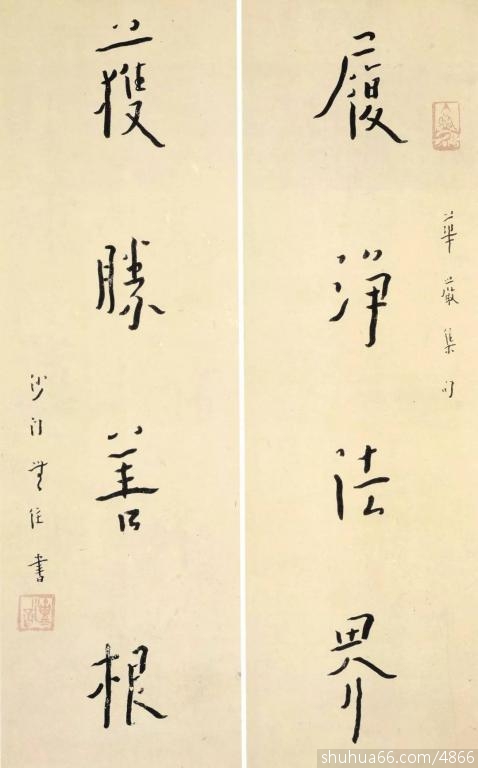 華嚴集句
履淨法界
獲勝善根
沙門無住書
shuhua66.com/4866